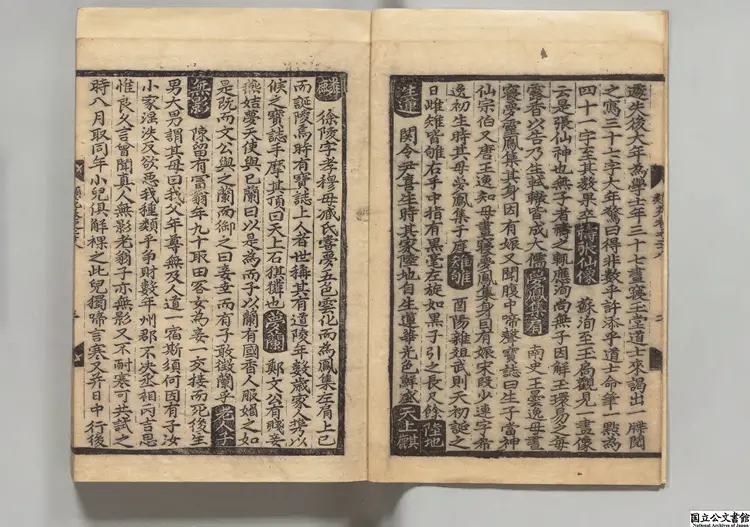 遂失後大年爲學士年三十七晝寢玉堂道士來謁出一牒閱
之寫三十七字大年驚曰得非數乎許添乎道士命筆一點爲
四十一字至其數果卒 禱張仙像 蘇洵至玉局觀見一畫像
云是張仙神也無子者禱之輒應洵尚無子因解玉環易之每
露香以告乃生軾轍皆成大儒 夢鳳集 南史王曇逸母晝
寢夢靈鳳集其身因有娠又聞腹中啼聲寶誌曰生子當神
仙宗伯又唐王逸知母晝寢夢鳳集身曰有娠宋段少連字希
逸初生時其母夢鳳集子庭 雊 酉陽雜俎武則天初誕之
日雌雉皆雊右手中指有黑毫左旋如黑子引之長尺餘 陸地
生蓮 関令尹喜生時其家陸地自生蓮華光色鮮盛 天上麒
麟 徐陵字孝穆母臧氏甞夢五色雲化而爲鳳集左肩上已
而誕陵焉時有寶誌上人者世稱其有道陵年數歲家人攜以
候之寶誌手摩其頂曰天上石麒麟也 夢蘭 鄭文公有賤妾
燕姞夢天使與已蘭曰以是爲而子以蘭有國香人服媚之如
是既而文公與之蘭而御之曰妾幸而有子敢徵蘭乎 老人子
無影 陳留有冨翁年九十取田客女爲妾一交接而死後生
男大男謂其母曰我父年尊無及人道一宿斯須何因有子汝
小家淫泆反欲惡我種類乎爭財數年州郡不决丞相丙吉思
惟良久言曾聞真人無影老翁子亦無影又不耐寒可共試之
時八月取同年小兒俱解裸之此兒獨啼言寒又并日中行後
国立公文書館
National Archives of Japan